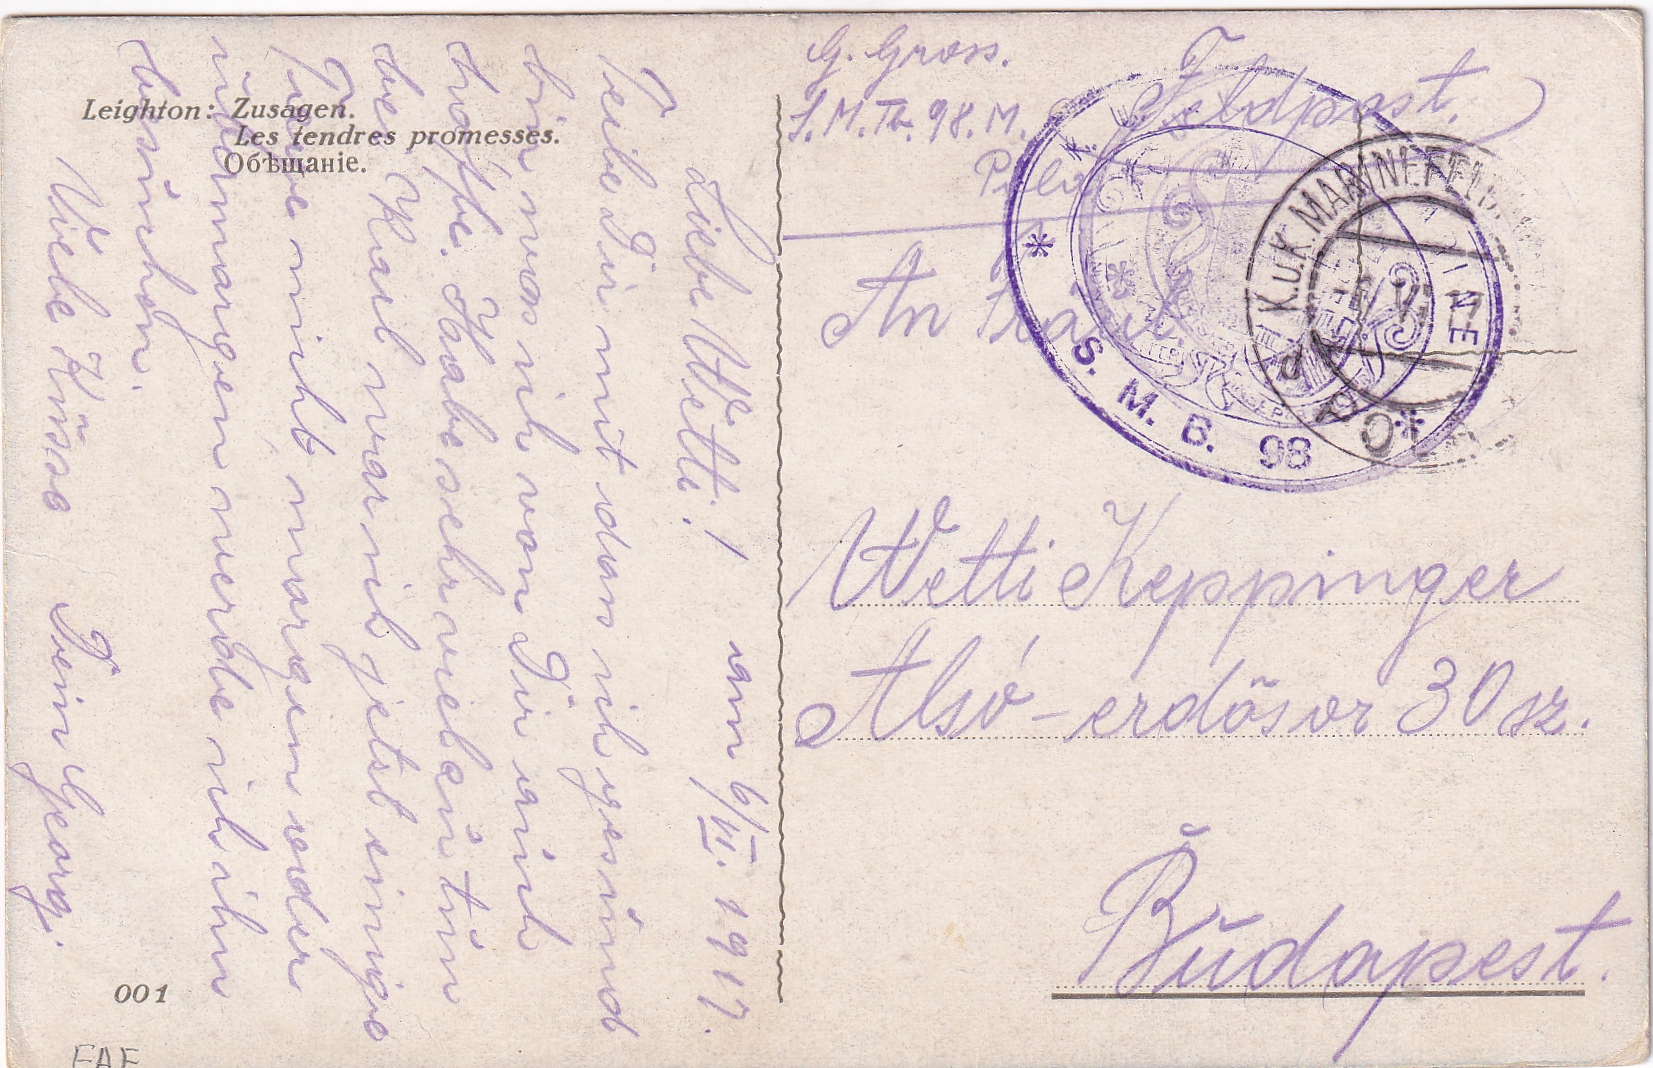 Leighton: Zusagen.
Les tendres promesses.
Обѣщаніе.
G. Gross.
S.M.Tb. 98. M.
Pola
Feldpost.
An Fräul.
Wetti Keppinger
Alsó-erdősor 30 sz.
Budapest.
K. u. K. MARINEFELD
POLA
S. M. B. 98
am 6/VI. 1917.
Liebe Wetti!
Teile Dir mit das ich gesund
bin was ich von Dir auch
hoffe. Habe sehr viel zu tun
bei Karl war ich jetzt einige
Tage nicht morgen oder
übermorgen werde ich ihn
besuchen.
Viele Küsse Dein Georg.
001
FAF